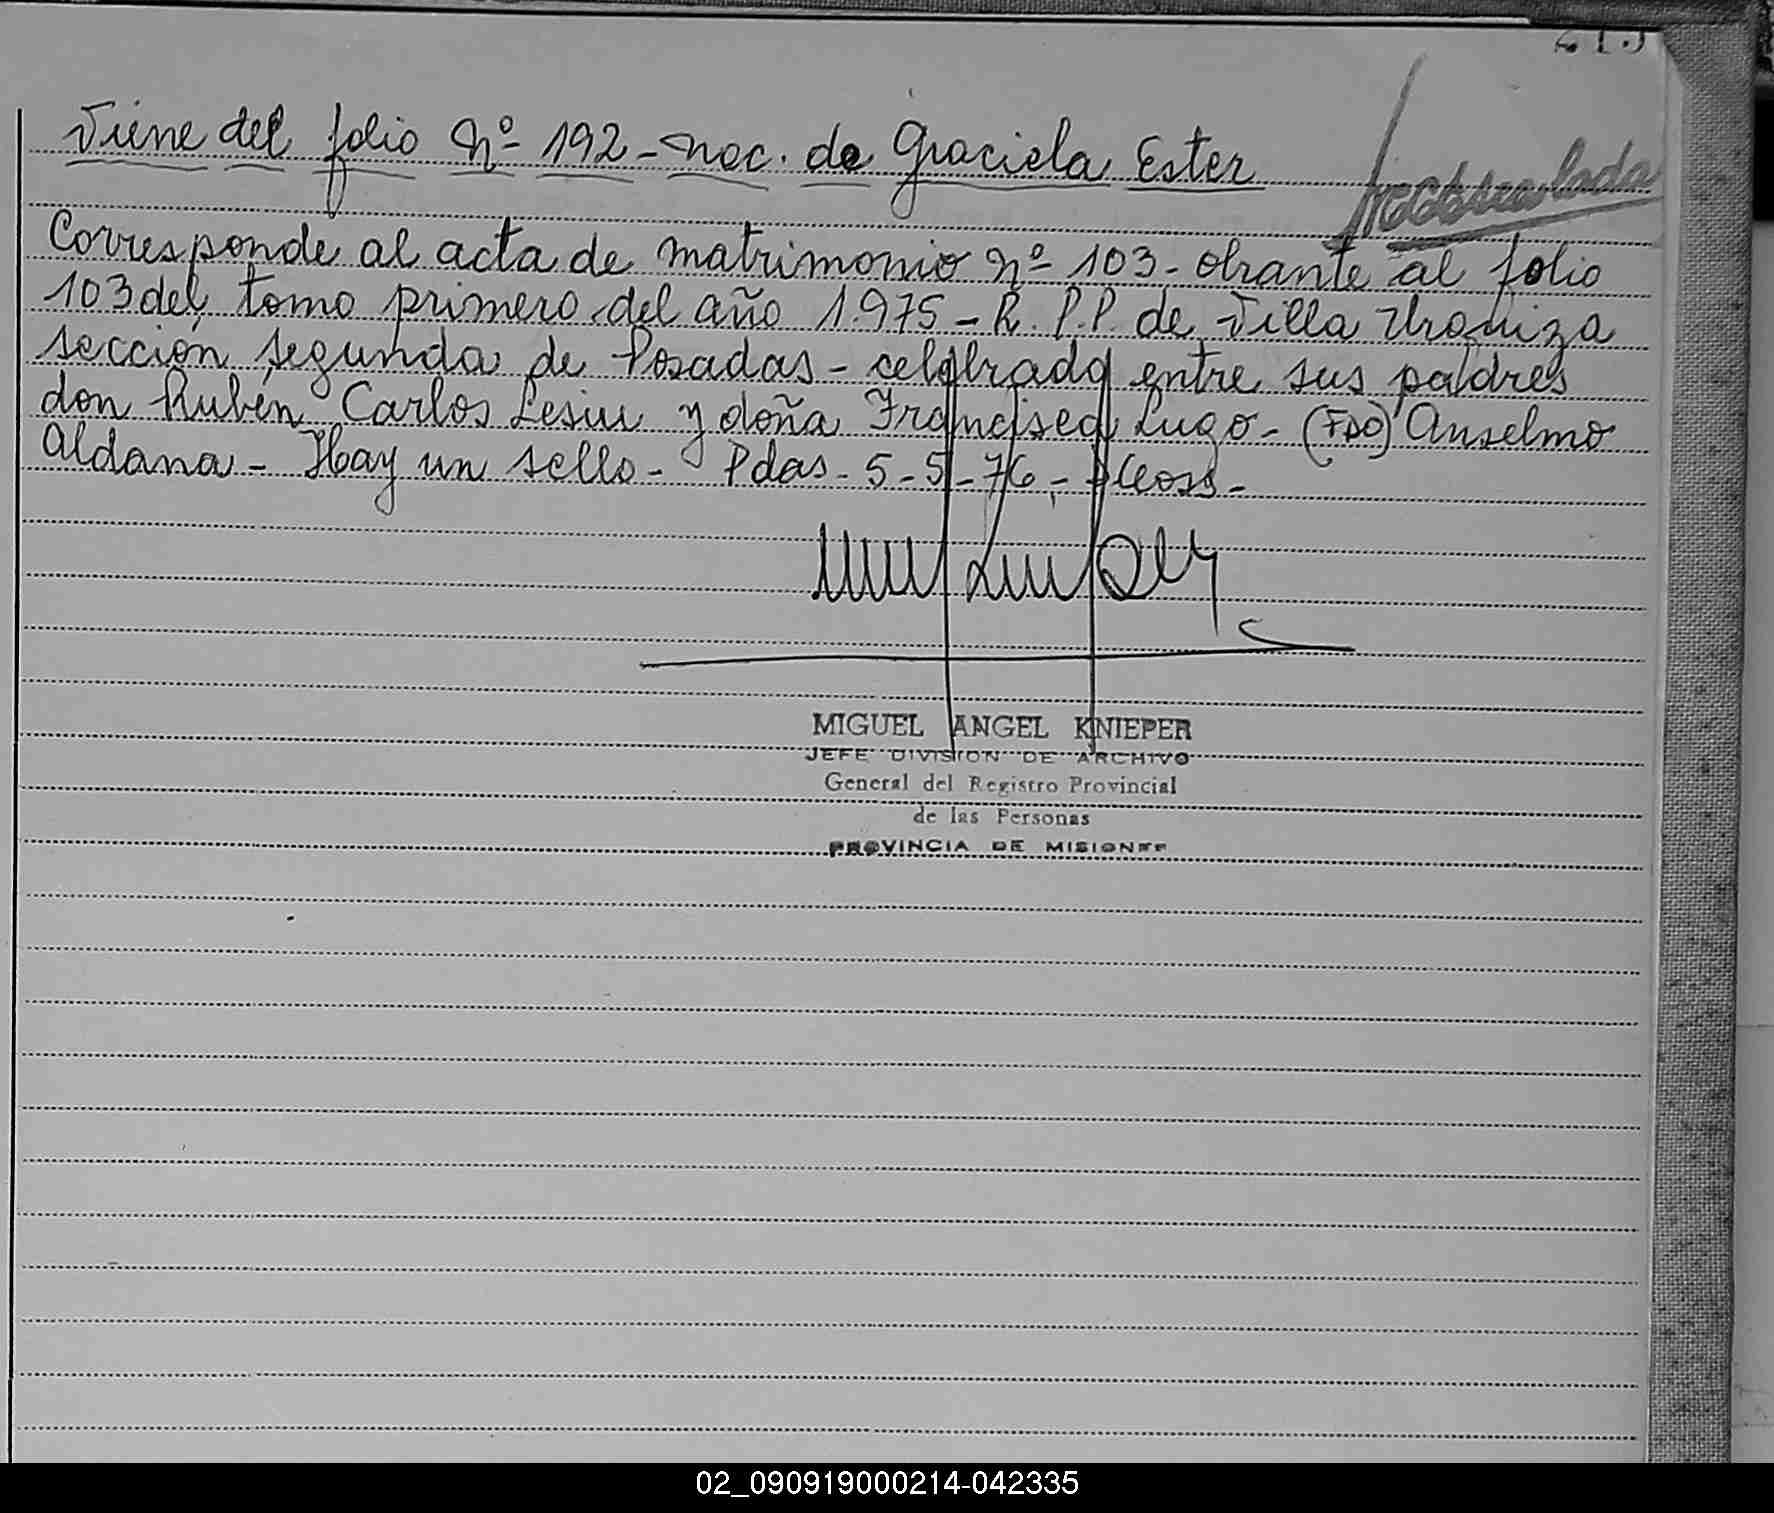 Viene del folio Nº 192 - nac. de Graciela Ester
Corresponde al acta de matrimonio nº 103 - obrante al folio
103 del tomo primero del año 1.975 - R. P.P. de Villa Urquiza
sección segunda de Posadas - celebrado entre sus padres
don Rubén Carlos Lesiu y doña Francisca Lugo - (FDO) Anselmo
Aldana - Hay un sello - Pdas - 5 - 5 - 76 -
MIGUEL ANGEL KNIEPER
JEFE DIVISION DE ARCHIVO
General del Registro Provincial
de las Personas
PROVINCIA DE MISIONES
02_090919000214-042335